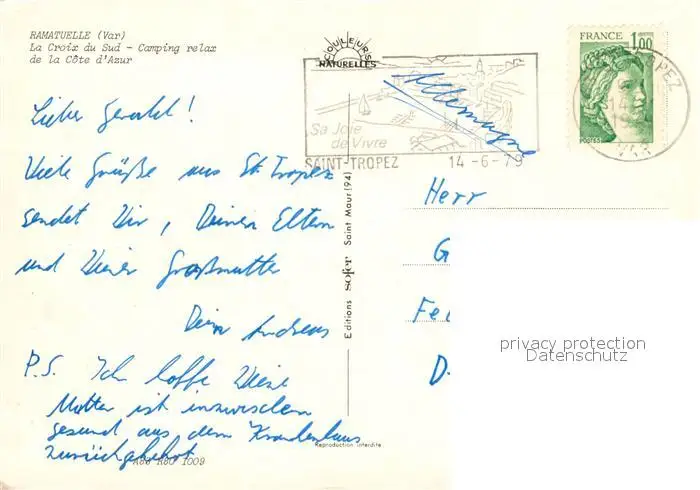 RAMATUELLE (Var)
La Croix du Sud - Camping relax
de la Côte d'Azur
COULEURS
NATURELLES
Sa Joie
de Vivre
SAINT-TROPEZ 14-6-79
FRANCE 1,00
POSTES
TROPEZ
VAR
Allemagne
Lieber Gerald!
Viele Grüße aus St. Tropez
sendet Dir, Deinen Eltern
und Deiner Großmutter
Dein Andreas
P.S. Ich hoffe Deine
Mutter ist inzwischen
gesund aus dem Krankenhaus
zurückgekehrt
Herr
G
Fe
D.
Editions sofer Saint Maur (94)
Reproduction interdite
1009
privacy protection
Datenschutz